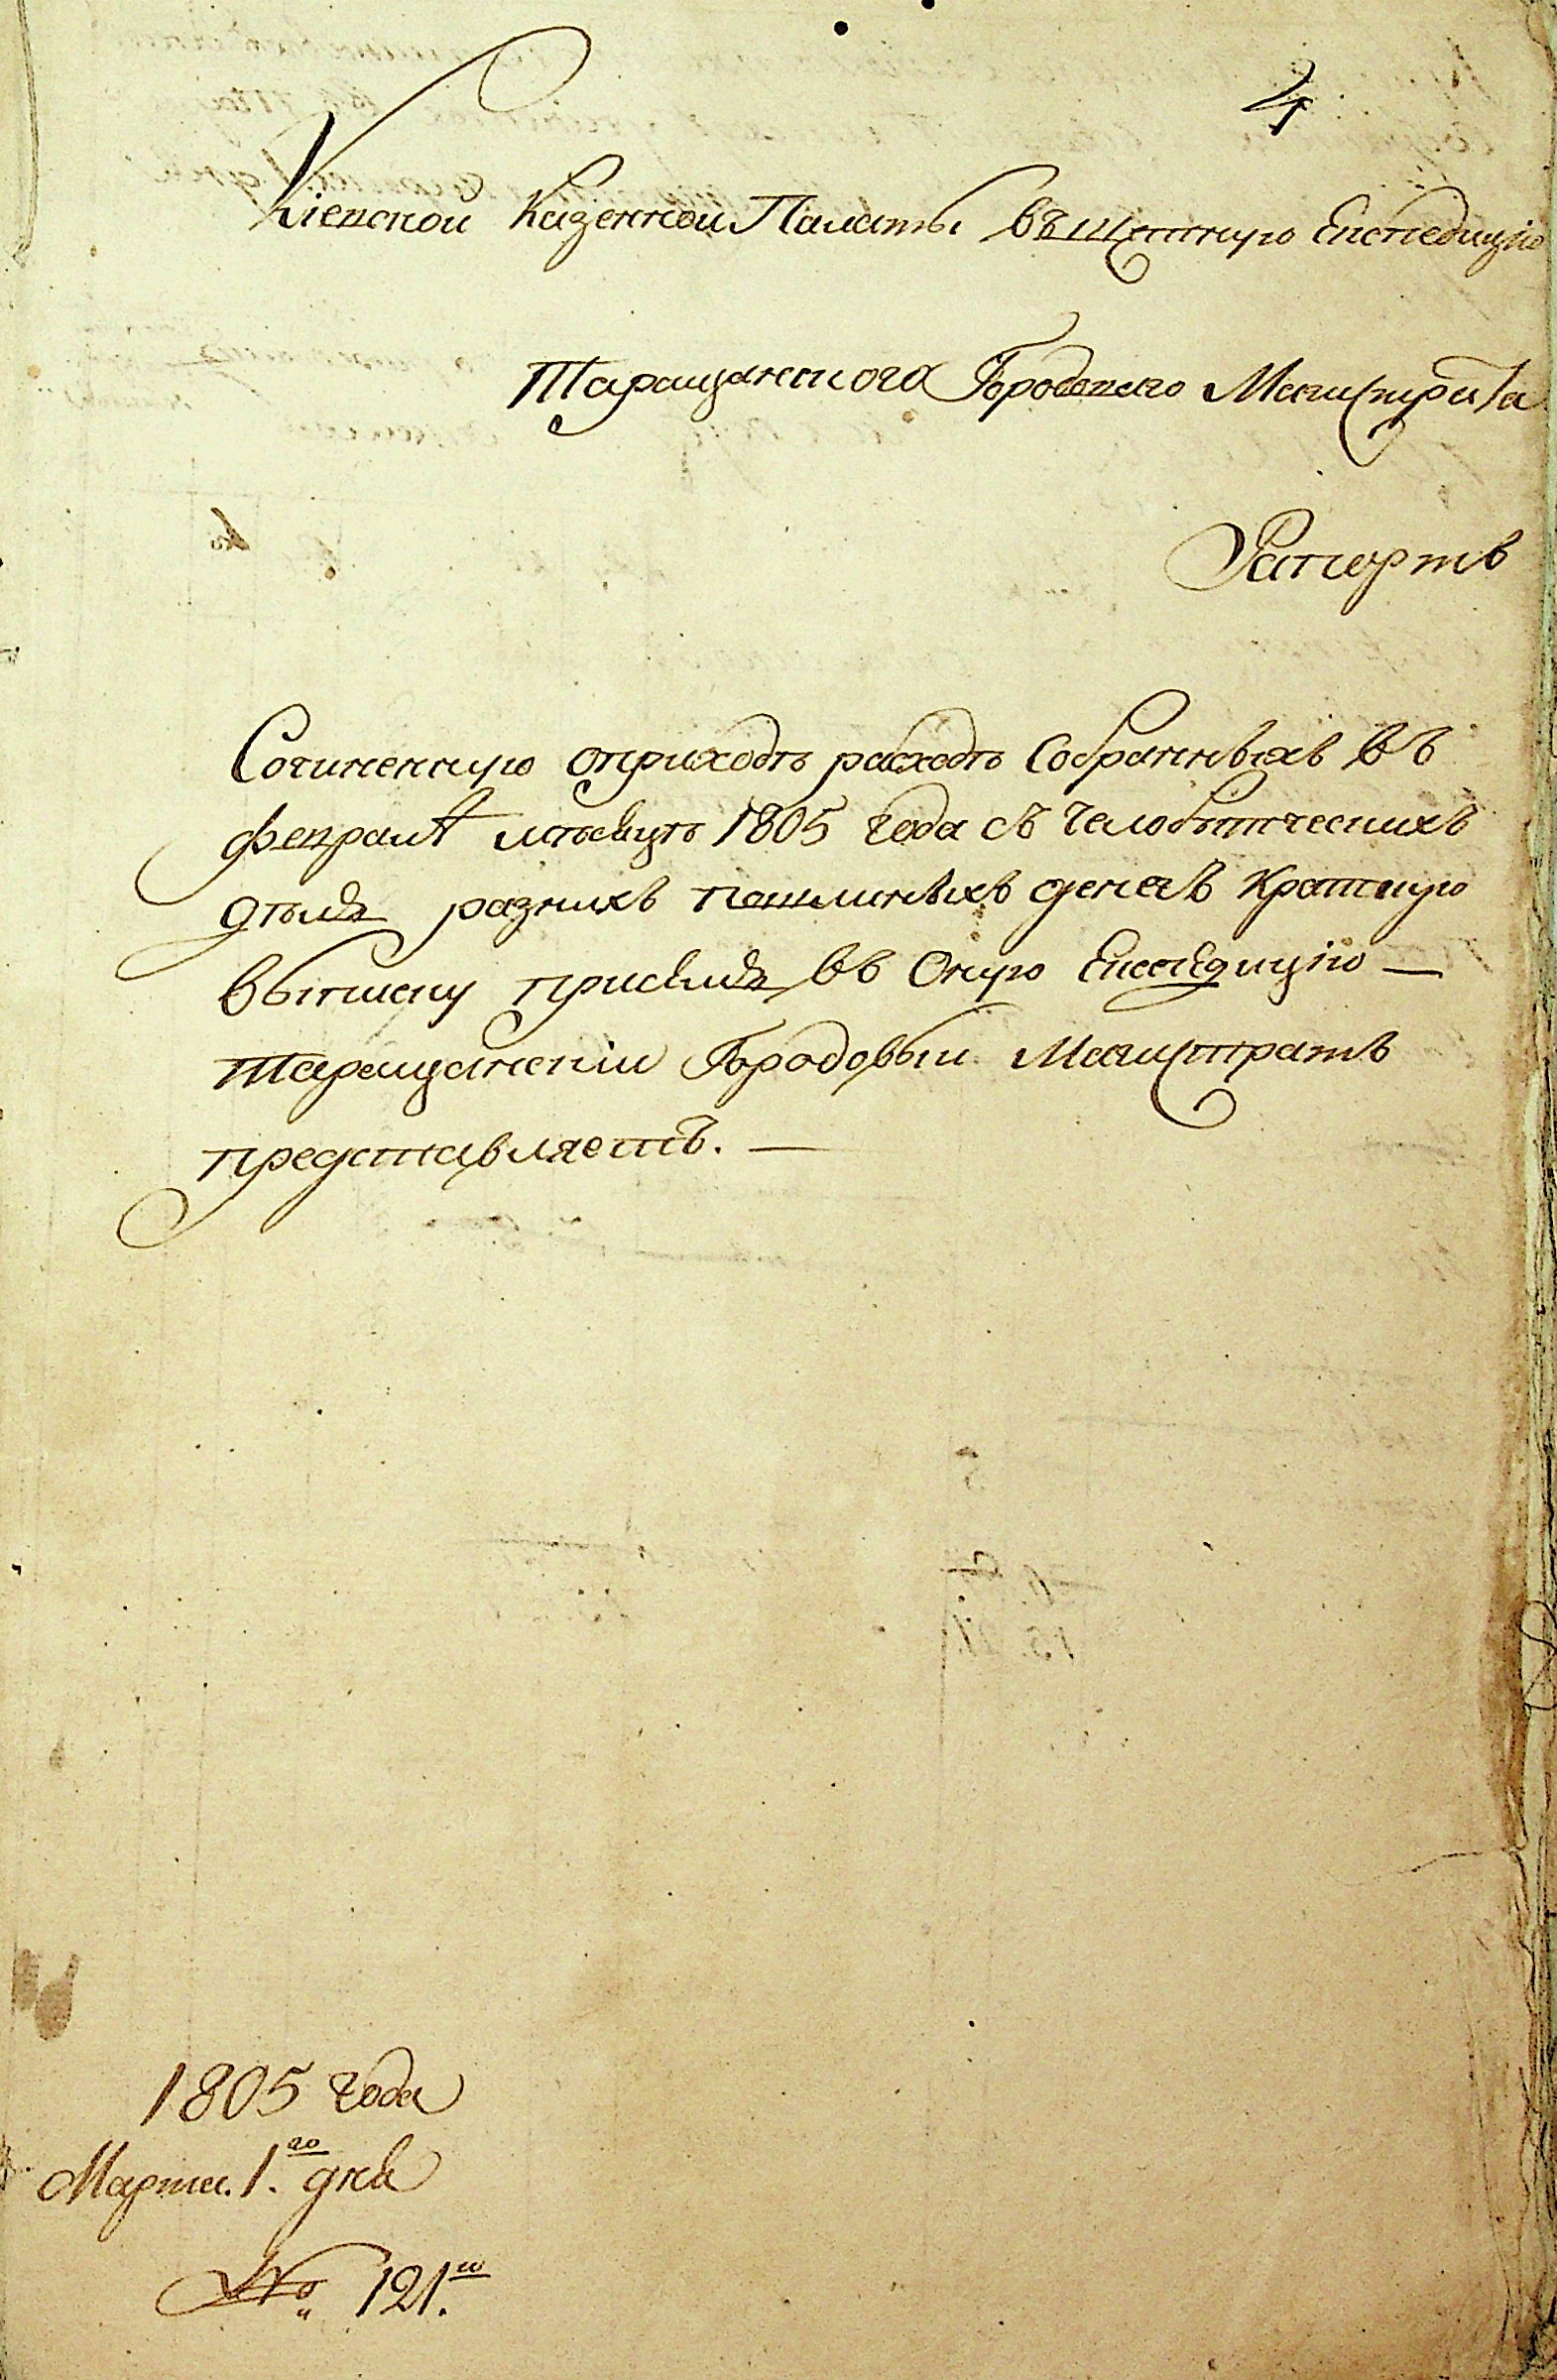 4
Кіевской Казенной Палаты въ Щетную Експедицію
Таращанского Городоваго Магистрата
Рапортъ
Сочиненную оприходѣ расходѣ собранныхъ въ
февралѣ мѣсяцѣ 1805 года съ челобитческихъ
дѣлъ разнихъ пошлинныхъ денегъ краткую
выписку присемъ въ Оную Експедицію —
Таращанскій Городовый Магистратъ
представляетъ. —
1805 года
Марта. 1.го дня
№ 121.го